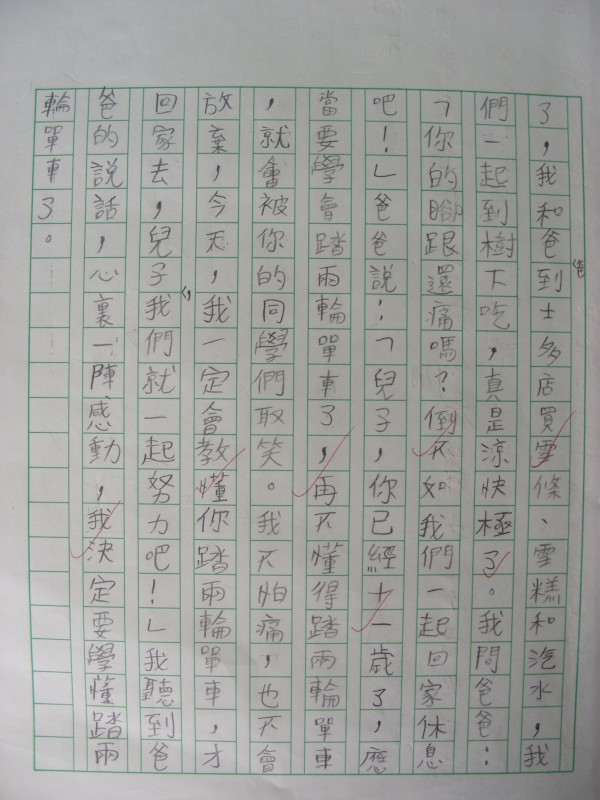 了，我和爸爸到士多店買雪條、雪糕和汽水，我
們一起到樹下吃，真是涼快極了。我問爸爸：
「你的腳跟還痛嗎？倒不如我們一起回家休息
吧！」爸爸說：「兒子，你已經十一歲了，應
當要學會踏兩輪單車了，再不懂得踏兩輪單車
，就會被你的同學們取笑。我不怕痛，也不會
放棄，今天，我一定會教懂你踏兩輪單車，才
回家去，兒子，我們就一起努力吧！」我聽到爸
爸的說話，心裏一陣感動，我決定要學懂踏兩
輪單車了。